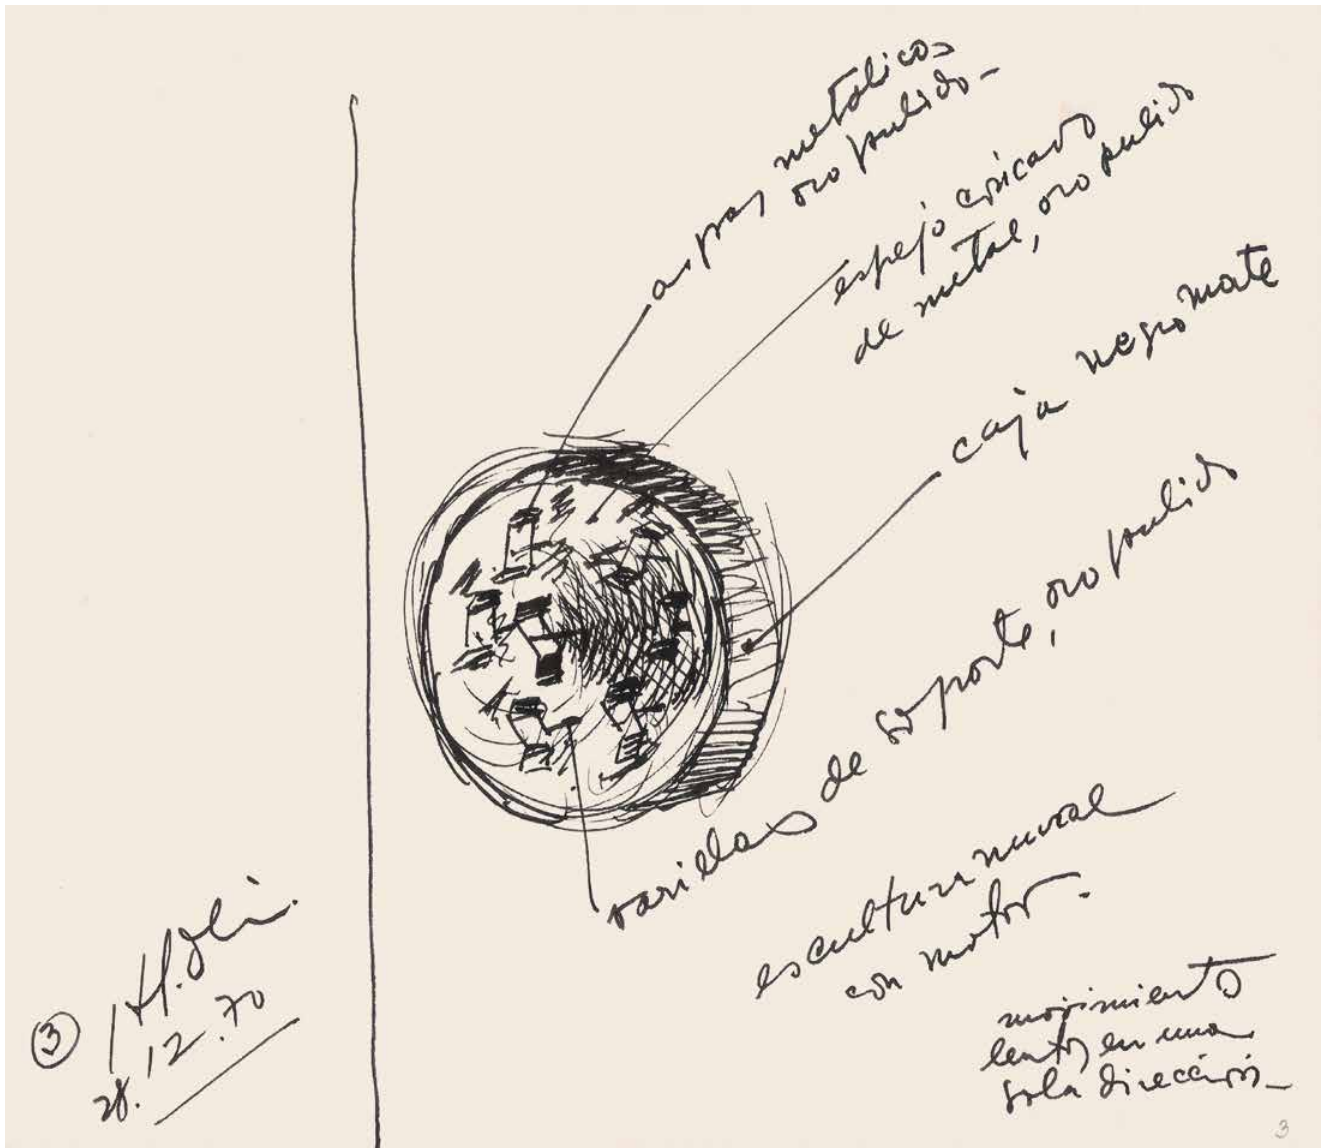 aspas metálicas
oro pulido -
espejo cóncavo
de metal, oro pulido
caja negro mate
varielas de soporte, oro pulido
escultura mural
con motor.
movimiento
lento, en una
sola dirección_
3
28.12.70
3